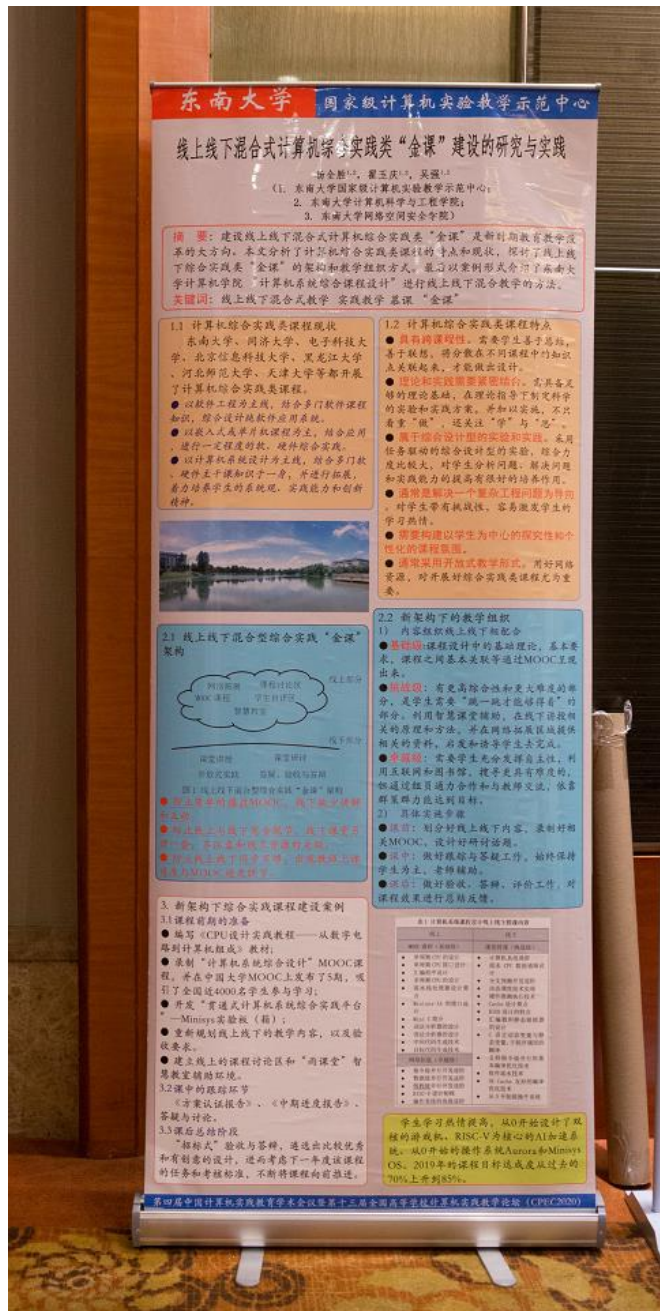 东南大学 国家级计算机实验教学示范中心
线上线下混合式计算机综合实践类“金课”建设的研究与实践
杨全胜1,2, 翟玉庆1,2, 吴强1,2
(1. 东南大学国家级计算机实验教学示范中心;
2. 东南大学计算机科学与工程学院;
3. 东南大学网络空间安全学院)
摘 要: 建设线上线下混合式计算机综合实践类“金课”是新时期教育教学改
革的大方向。本文分析了计算机综合实践类课程的特点和现状, 探讨了线上线
下综合实践类“金课”的架构和教学组织方式, 最后以案例形式介绍了东南大
学计算机学院 “计算机系统综合课程设计”进行线上线下混合教学的方法。
关键词: 线上线下混合式教学 实践教学 慕课 “金课”
1.1 计算机综合实践类课程现状
东南大学、同济大学、电子科技大
学、北京信息科技大学、黑龙江大学
、河北师范大学、天津大学等都开展
了计算机综合实践类课程。
● 以软件工程为主线, 结合多门软件课程
知识, 综合设计统软件应用系统。
● 以嵌入式或单片机课程为主, 结合应用
, 进行一定程度的软、硬件综合实践。
● 以计算机系统设计为主线, 结合多门软
、硬件主干课知识于一身, 并进行拓展,
着力培养学生的系统观、实践能力和创新
精神。
1.2 计算机综合实践类课程特点
● 具有跨课程性。需要学生善于总结,
善于联想, 将分散在不同课程中的知识
点关联起来, 才能做出设计。
● 理论和实践需要紧密结合。需具备足
够的理论基础, 在理论指导下制定科学
的实验和实践方案, 并加以实施, 不只
着重“做”, 还关注“学”与“思”。
● 属于综合设计型的实验和实践。采用
任务驱动的综合设计型的实验, 综合力
度比较大, 对学生分析问题、解决问题
和实践能力的提高有很好的培养作用。
● 通常是解决一个复杂工程问题为导向
, 对学生带有挑战性, 容易激发学生的
学习热情。
● 需要构建以学生为中心的探究性和个
性化的课程氛围。
● 通常采用开放式教学形式。用好网络
资源, 对开展好综合实践类课程尤为重
要。
2.1 线上线下混合型综合实践“金课”
架构
网络拓展 课程讨论区
MOOC 课程 学生自评区
智慧教室
线上部分
线下部分
课堂讲授 课堂研讨
开放式实践 答辩、验收与答疑
2.2 新架构下的教学组织
1) 内容组织线上线下相配合
●基础级:课程设计中的基础理论, 基本要
求, 课程之间基本关联等通过MOOC呈现
出来。
●挑战级: 有更高综合性和更大难度的部
分, 是学生需要“跳一跳才能够得着”的
部分。利用智慧课堂辅助, 在线下讲授相
关的原理和方法, 并在网络拓展区域提供
相关的资料, 启发和诱导学生去完成。
需要学生充分发挥自主性, 利
用互联网和图书馆, 搜寻更具有难度的,
但通过组员通力合作和与教师交流, 依靠
群策群力能达到目标。
2) 具体实施步骤
●课前: 划分好线上线下内容, 录制好相
关MOOC, 设计好研讨话题。
●课中: 做好跟踪与答疑工作, 始终保持
学生为主, 老师辅助。
●课后: 做好验收、答辩、评价工作, 对
课程效果进行总结反馈。
3. 新架构下综合实践课程建设案例
3.1课程前期的准备
● 编写《CPU设计实践教程——从数字电
路到计算机组成》教材;
● 录制“计算机系统综合设计”MOOC课
程, 并在中国大学MOOC上发布了5期, 吸
引了全国近4000名学生参与学习;
● 开发“贯通式计算机系统综合实践平台
”—Minisys实验板(箱);
● 重新规划线上线下的教学内容, 以及验
收要求。
● 建立线上的课程讨论区和“雨课堂”智
慧教室辅助环境。
3.2课中的跟踪环节
《方案认证报告》、《中期进度报告》、
答疑与讨论。
3.3课后总结阶段
“招标式”验收与答辩, 遴选出比较优秀
和有创意的设计, 进而考虑下一年度该课程
的任务和考核标准, 不断将课程向前推进。
表1 计算机系统课程设计线上线下授课内容
线上 线下
学生学习热情提高, 从0开始设计了双
核的游戏机、RISC-V为核心的AI加速系
统, 从0开始的操作系统Aurora和Minisys
OS。2019年的课程目标达成度从过去的
70%上升到85%。
第四届中国计算机实践教育学术会议暨第十三届全国高等学校计算机实践教学论坛 (CPEC2020)